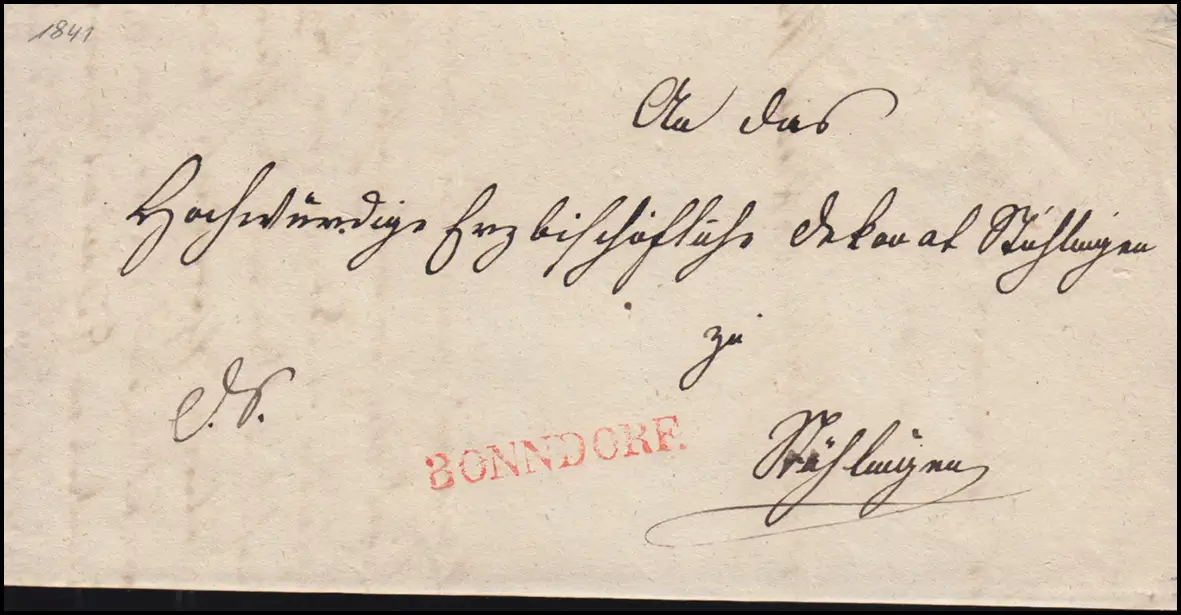 1841
An das
Hochwürdige Erzbischöfliche Dekanat Stühlingen
zu
D. S.
BONNDORF.
Stühlingen